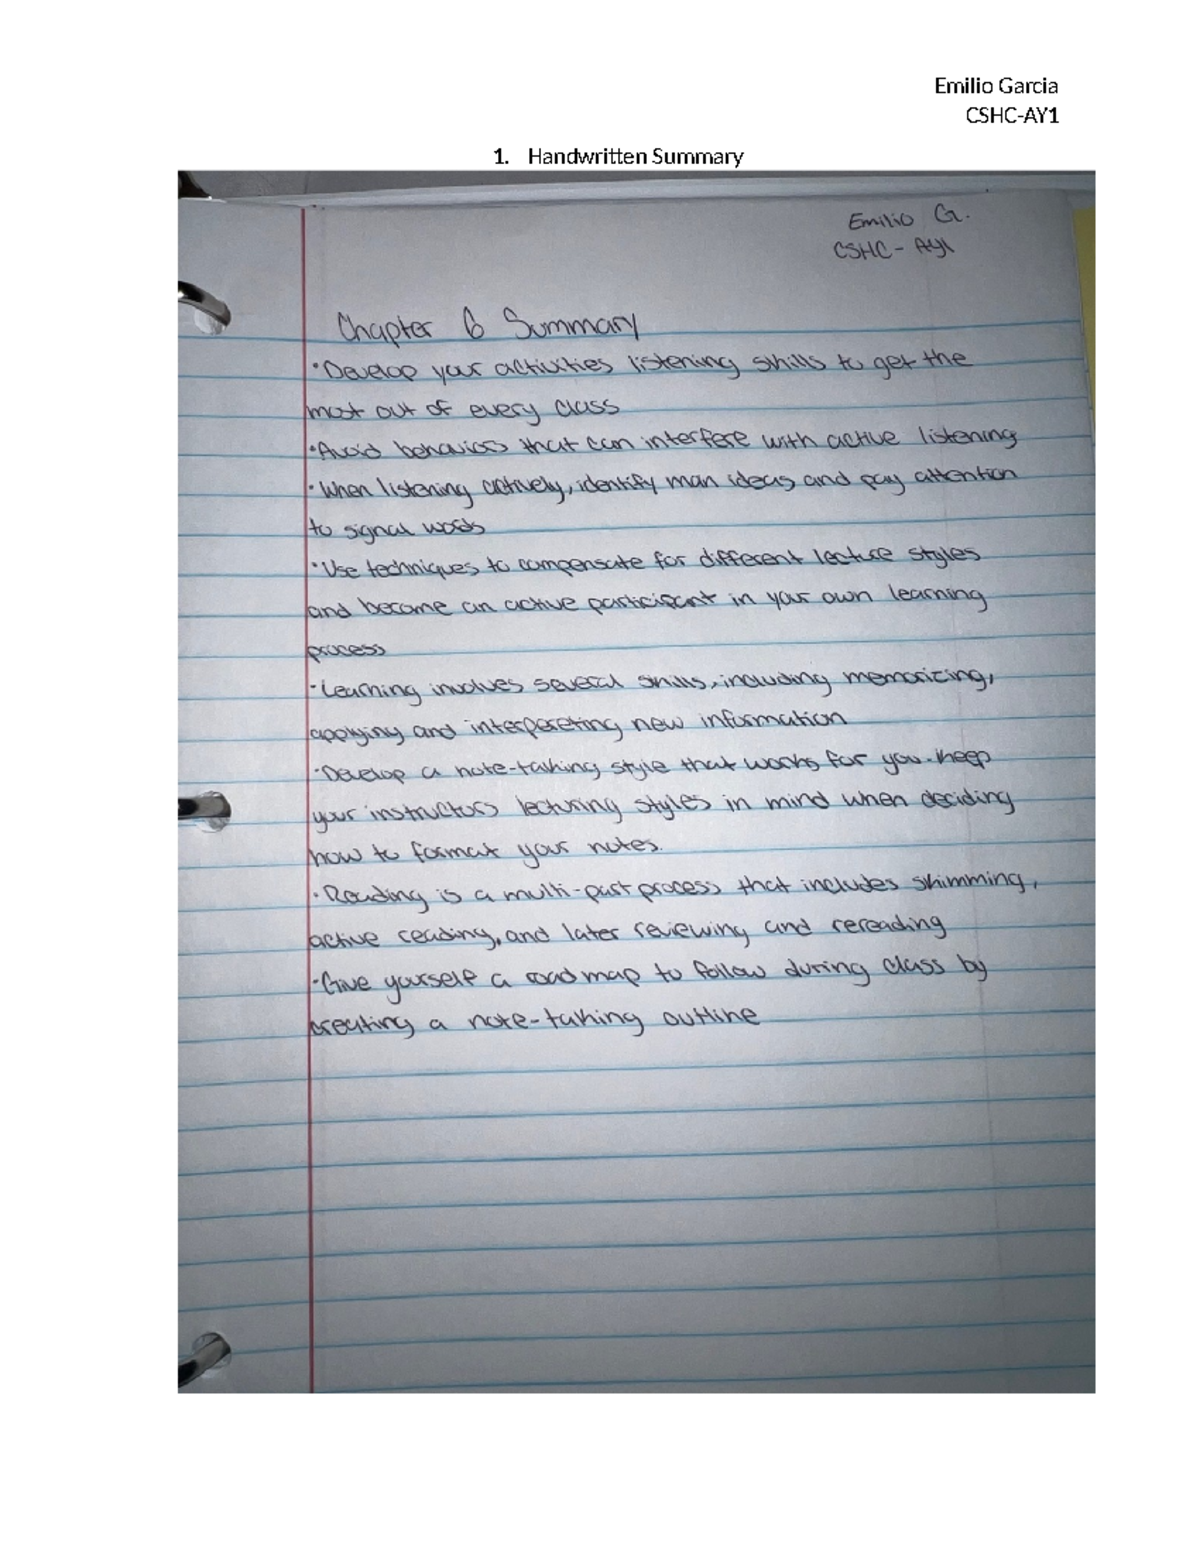 Emilio Garcia
CSHC-AY1
1. Handwritten Summary
Emilio G.
CSHC - AY1
Chapter 6 Summary
•Develop your activities listening skills to get the
most out of every class
•Avoid behaviors that can interfere with active listening
•When listening actively, identify man ideas and pay attention
to signal words
•Use techniques to compensate for different lecture styles
and become an active participant in your own learning
process
•Learning involves several skills, including memorizing,
applying and interpereting new information
•Develop a note-taking style that works for you. Keep
your instructors lecturing styles in mind when deciding
how to format your notes.
•Reading is a multi-part process that includes skimming,
active reading, and later reviewing and rereading
•Give yourself a road map to follow during class by
creating a note-taking outline